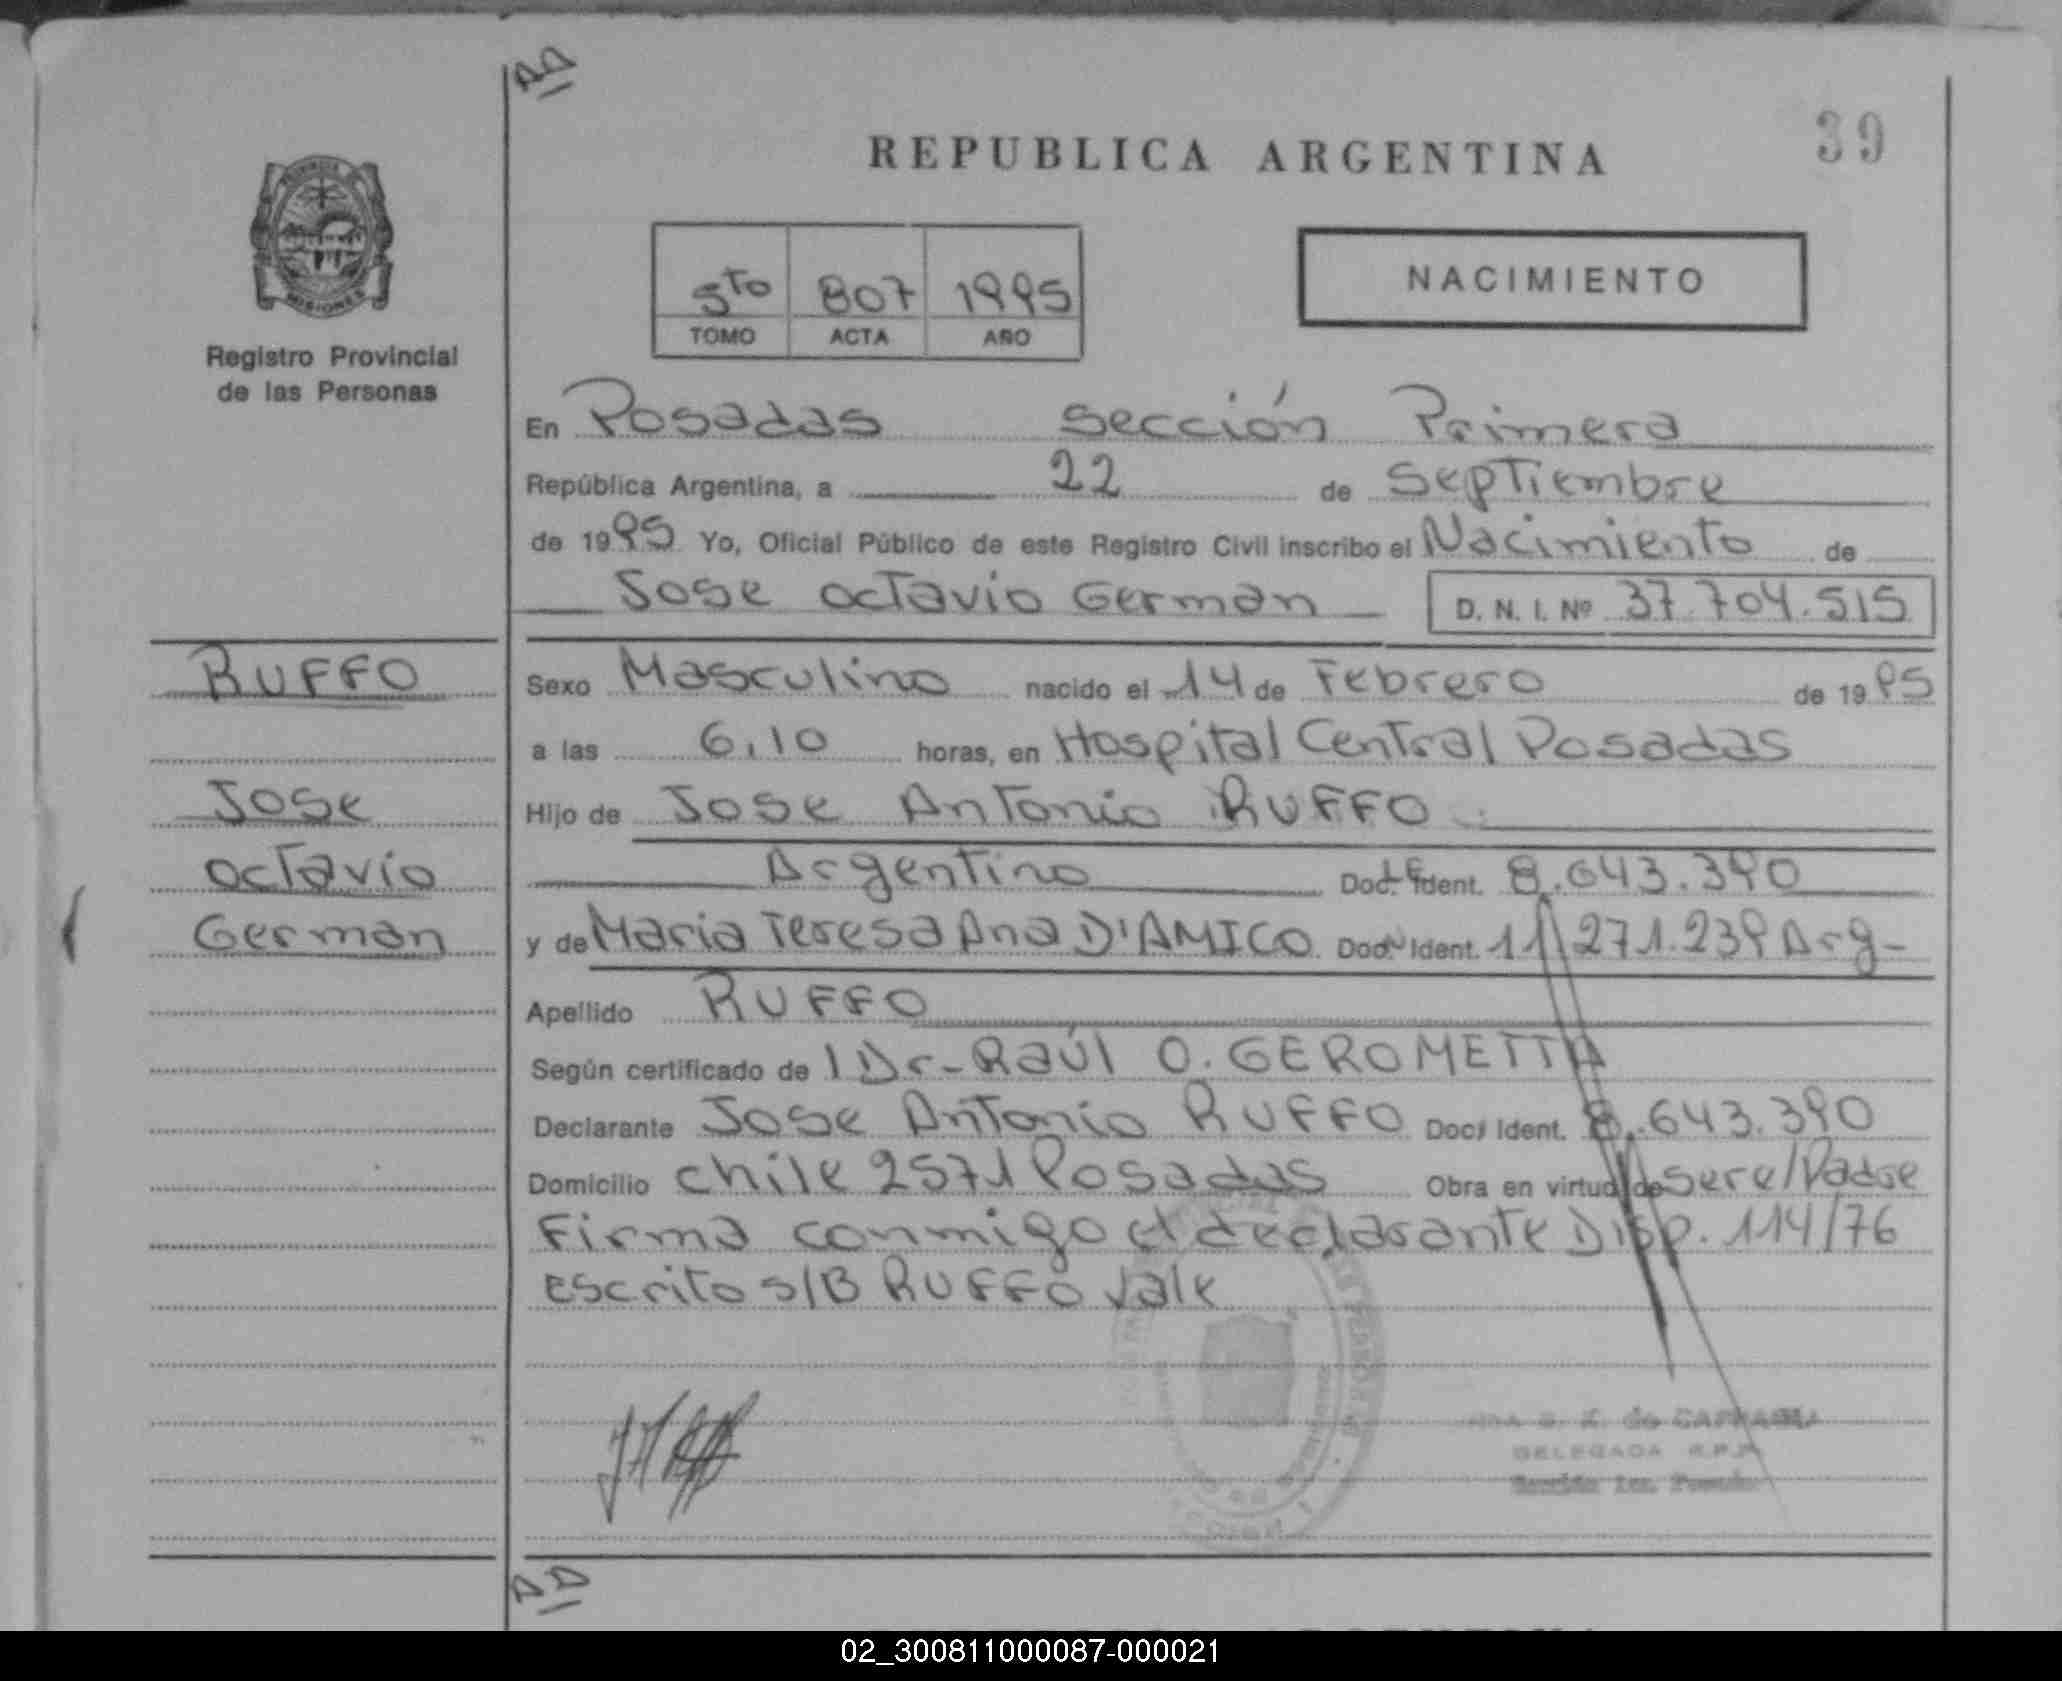 AD
REPUBLICA ARGENTINA
39
PROVINCIA
MISIONES
Registro Provincial
de las Personas
5to 807 1995
TOMO ACTA AÑO
NACIMIENTO
En Posadas sección Primera
República Argentina, a 22 de Septiembre
de 1995 Yo, Oficial Público de este Registro Civil inscribo el Nacimiento de
Jose Octavio German D. N. I. Nº 37.704.515
RUFFO
Jose
Octavio
German
Sexo Masculino nacido el 14 de Febrero de 1995
a las 6,10 horas, en Hospital Central Posadas
Hijo de Jose Antonio RUFFO
Argentino Doc. Ident. 8.643.390
y de Maria Teresa Ana D'AMICO Doc. Ident. 11.271.239 Arg-
Apellido RUFFO
Según certificado de l Dr-Raúl O. GEROMETTA
Declarante Jose Antonio RUFFO Doc. Ident. 8.643.390
Domicilio Chile 2571 Posadas Obra en virtud de ser el Padre
Firma conmigo el declarante Disp. 114/76
Escrito s/B RUFFO Vale
DELEGADA R.P.P.
AD
02_300811000087-000021